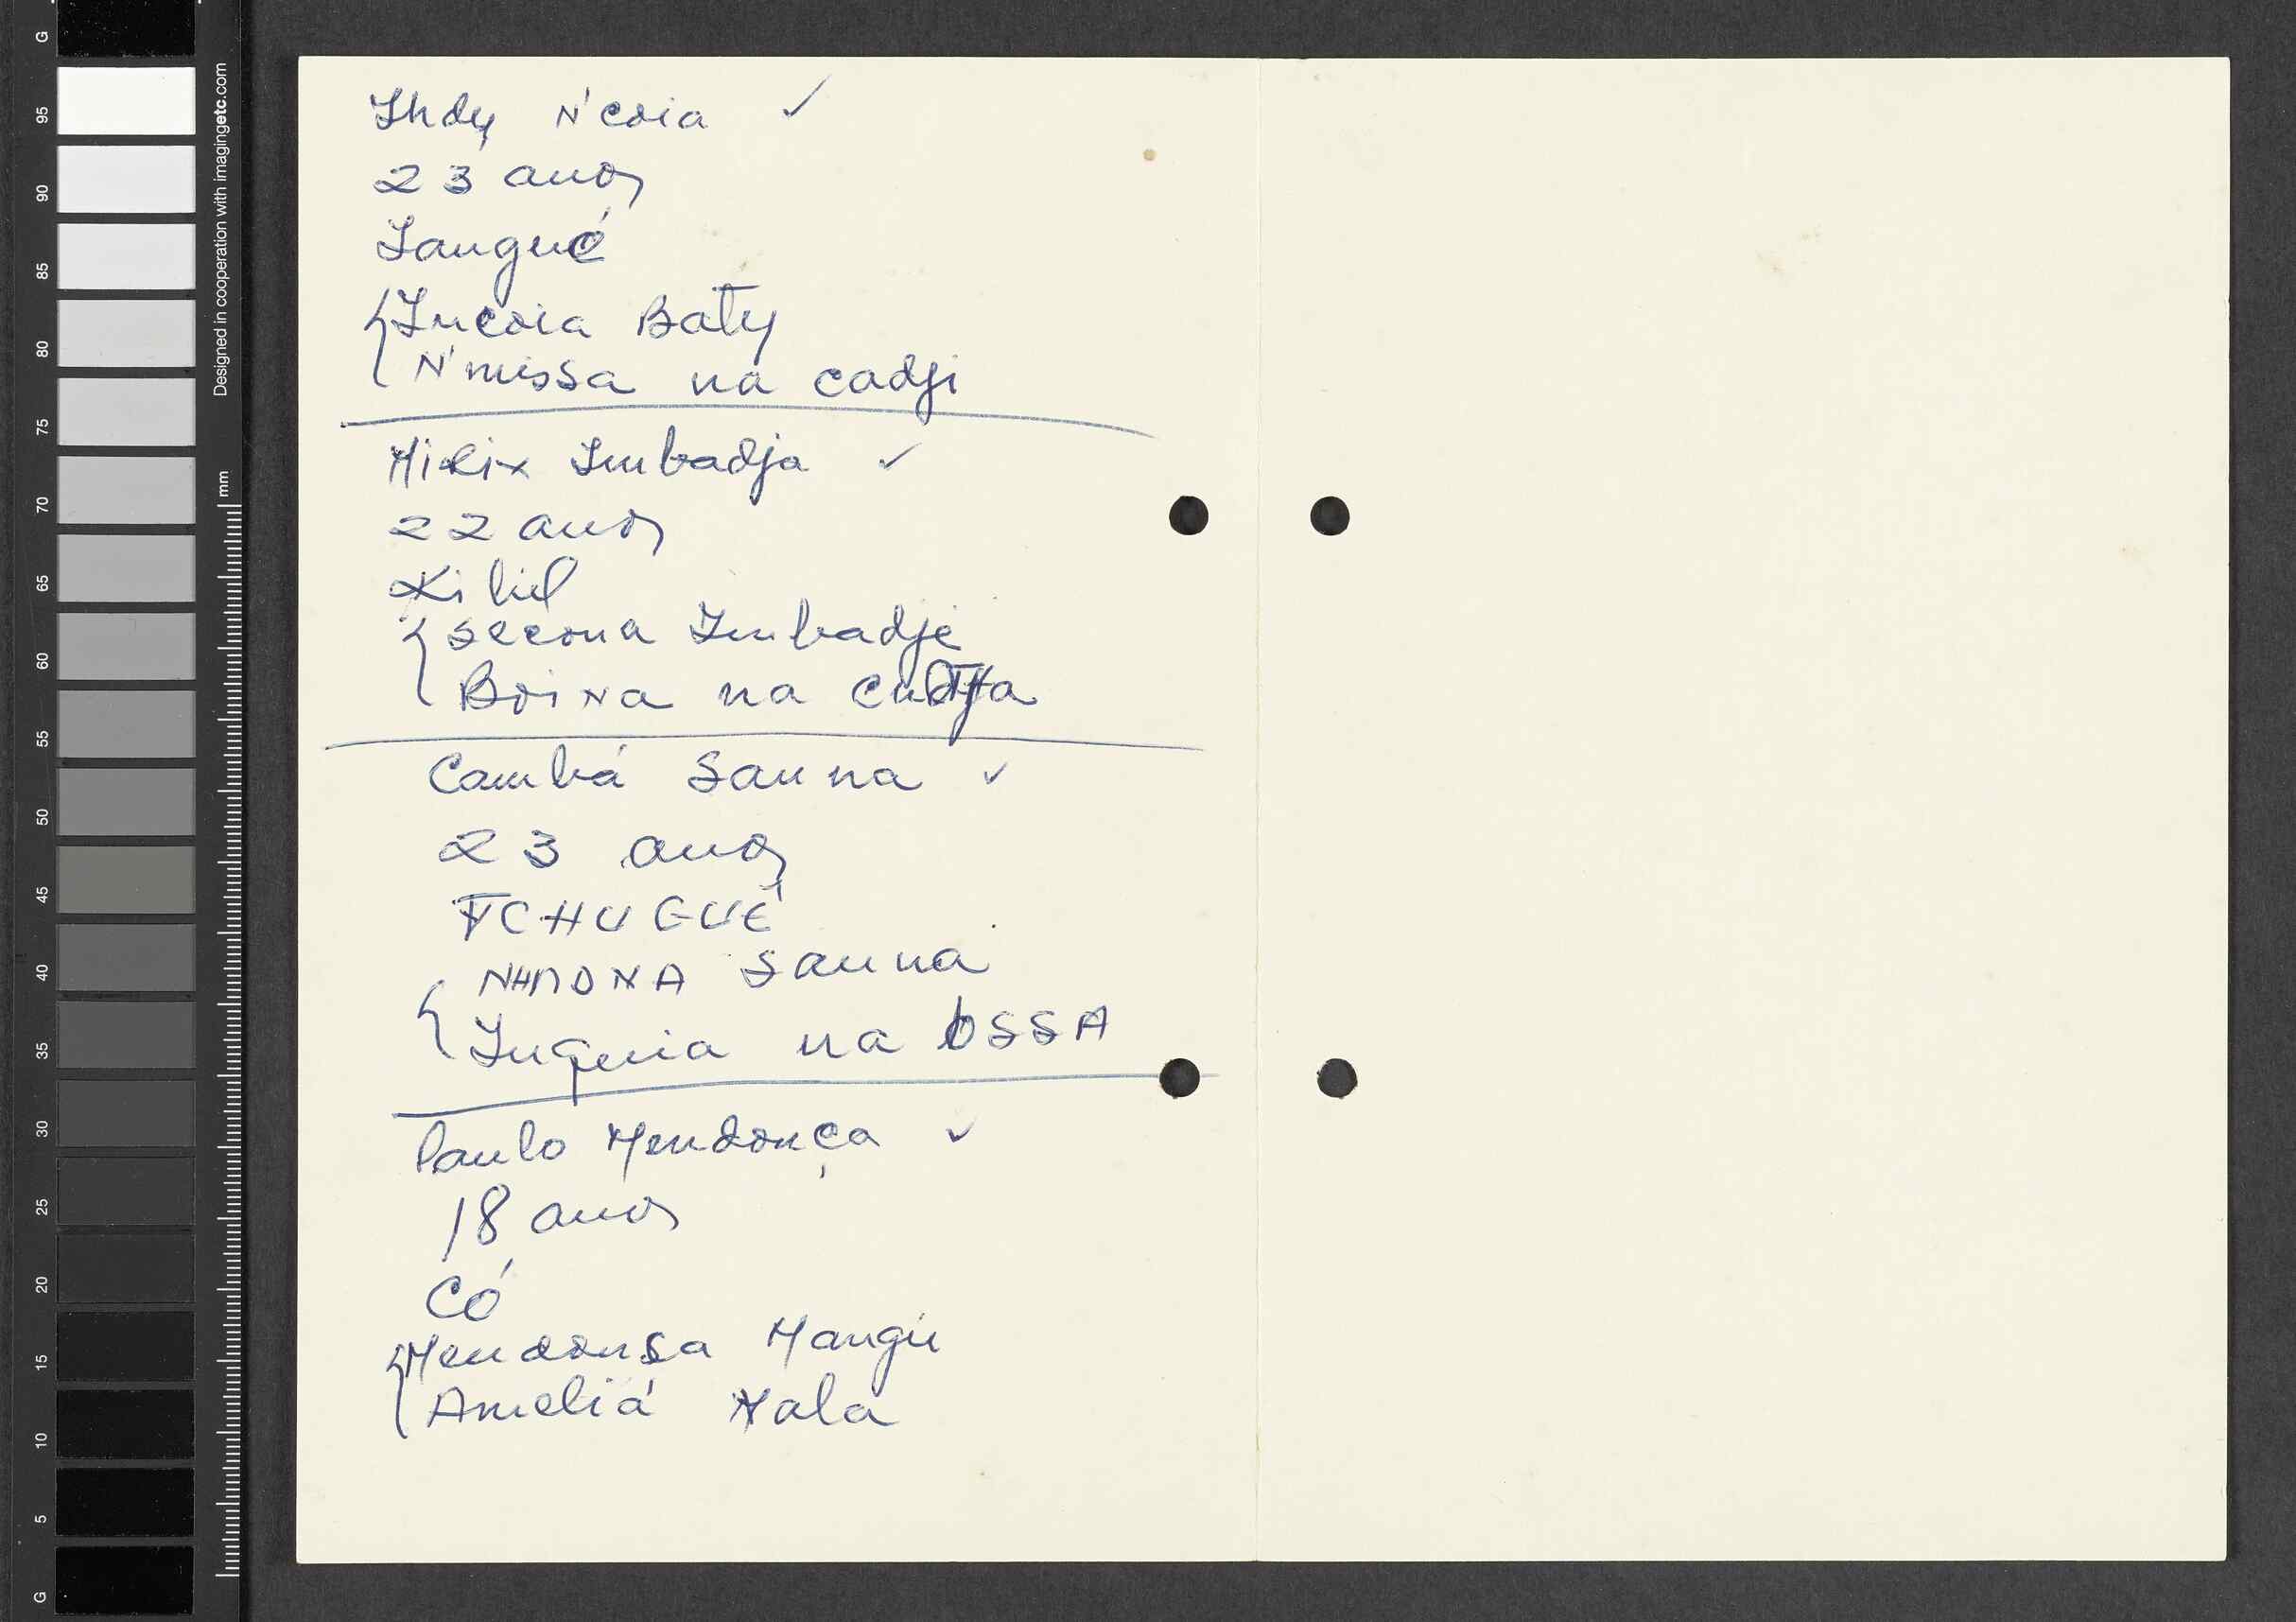 Indy N'coia ✓
23 anos
Sangué
Incoia Baty
N'missa na cadji
Milix Imbadja ✓
22 anos
Kibil
Secona Imbadje
Boina na
Cambá Sanna ✓
23 anos
TCHUGUÉ
Sanna
Inquia na OSSA
Paulo Mendonça ✓
18 anos
Có
Mendonsa Mangu
Ameliá Nala
Designed in cooperation with imagingetc.com
mm
G
95
90
85
80
75
70
65
60
55
50
45
40
35
30
25
20
15
10
5
G